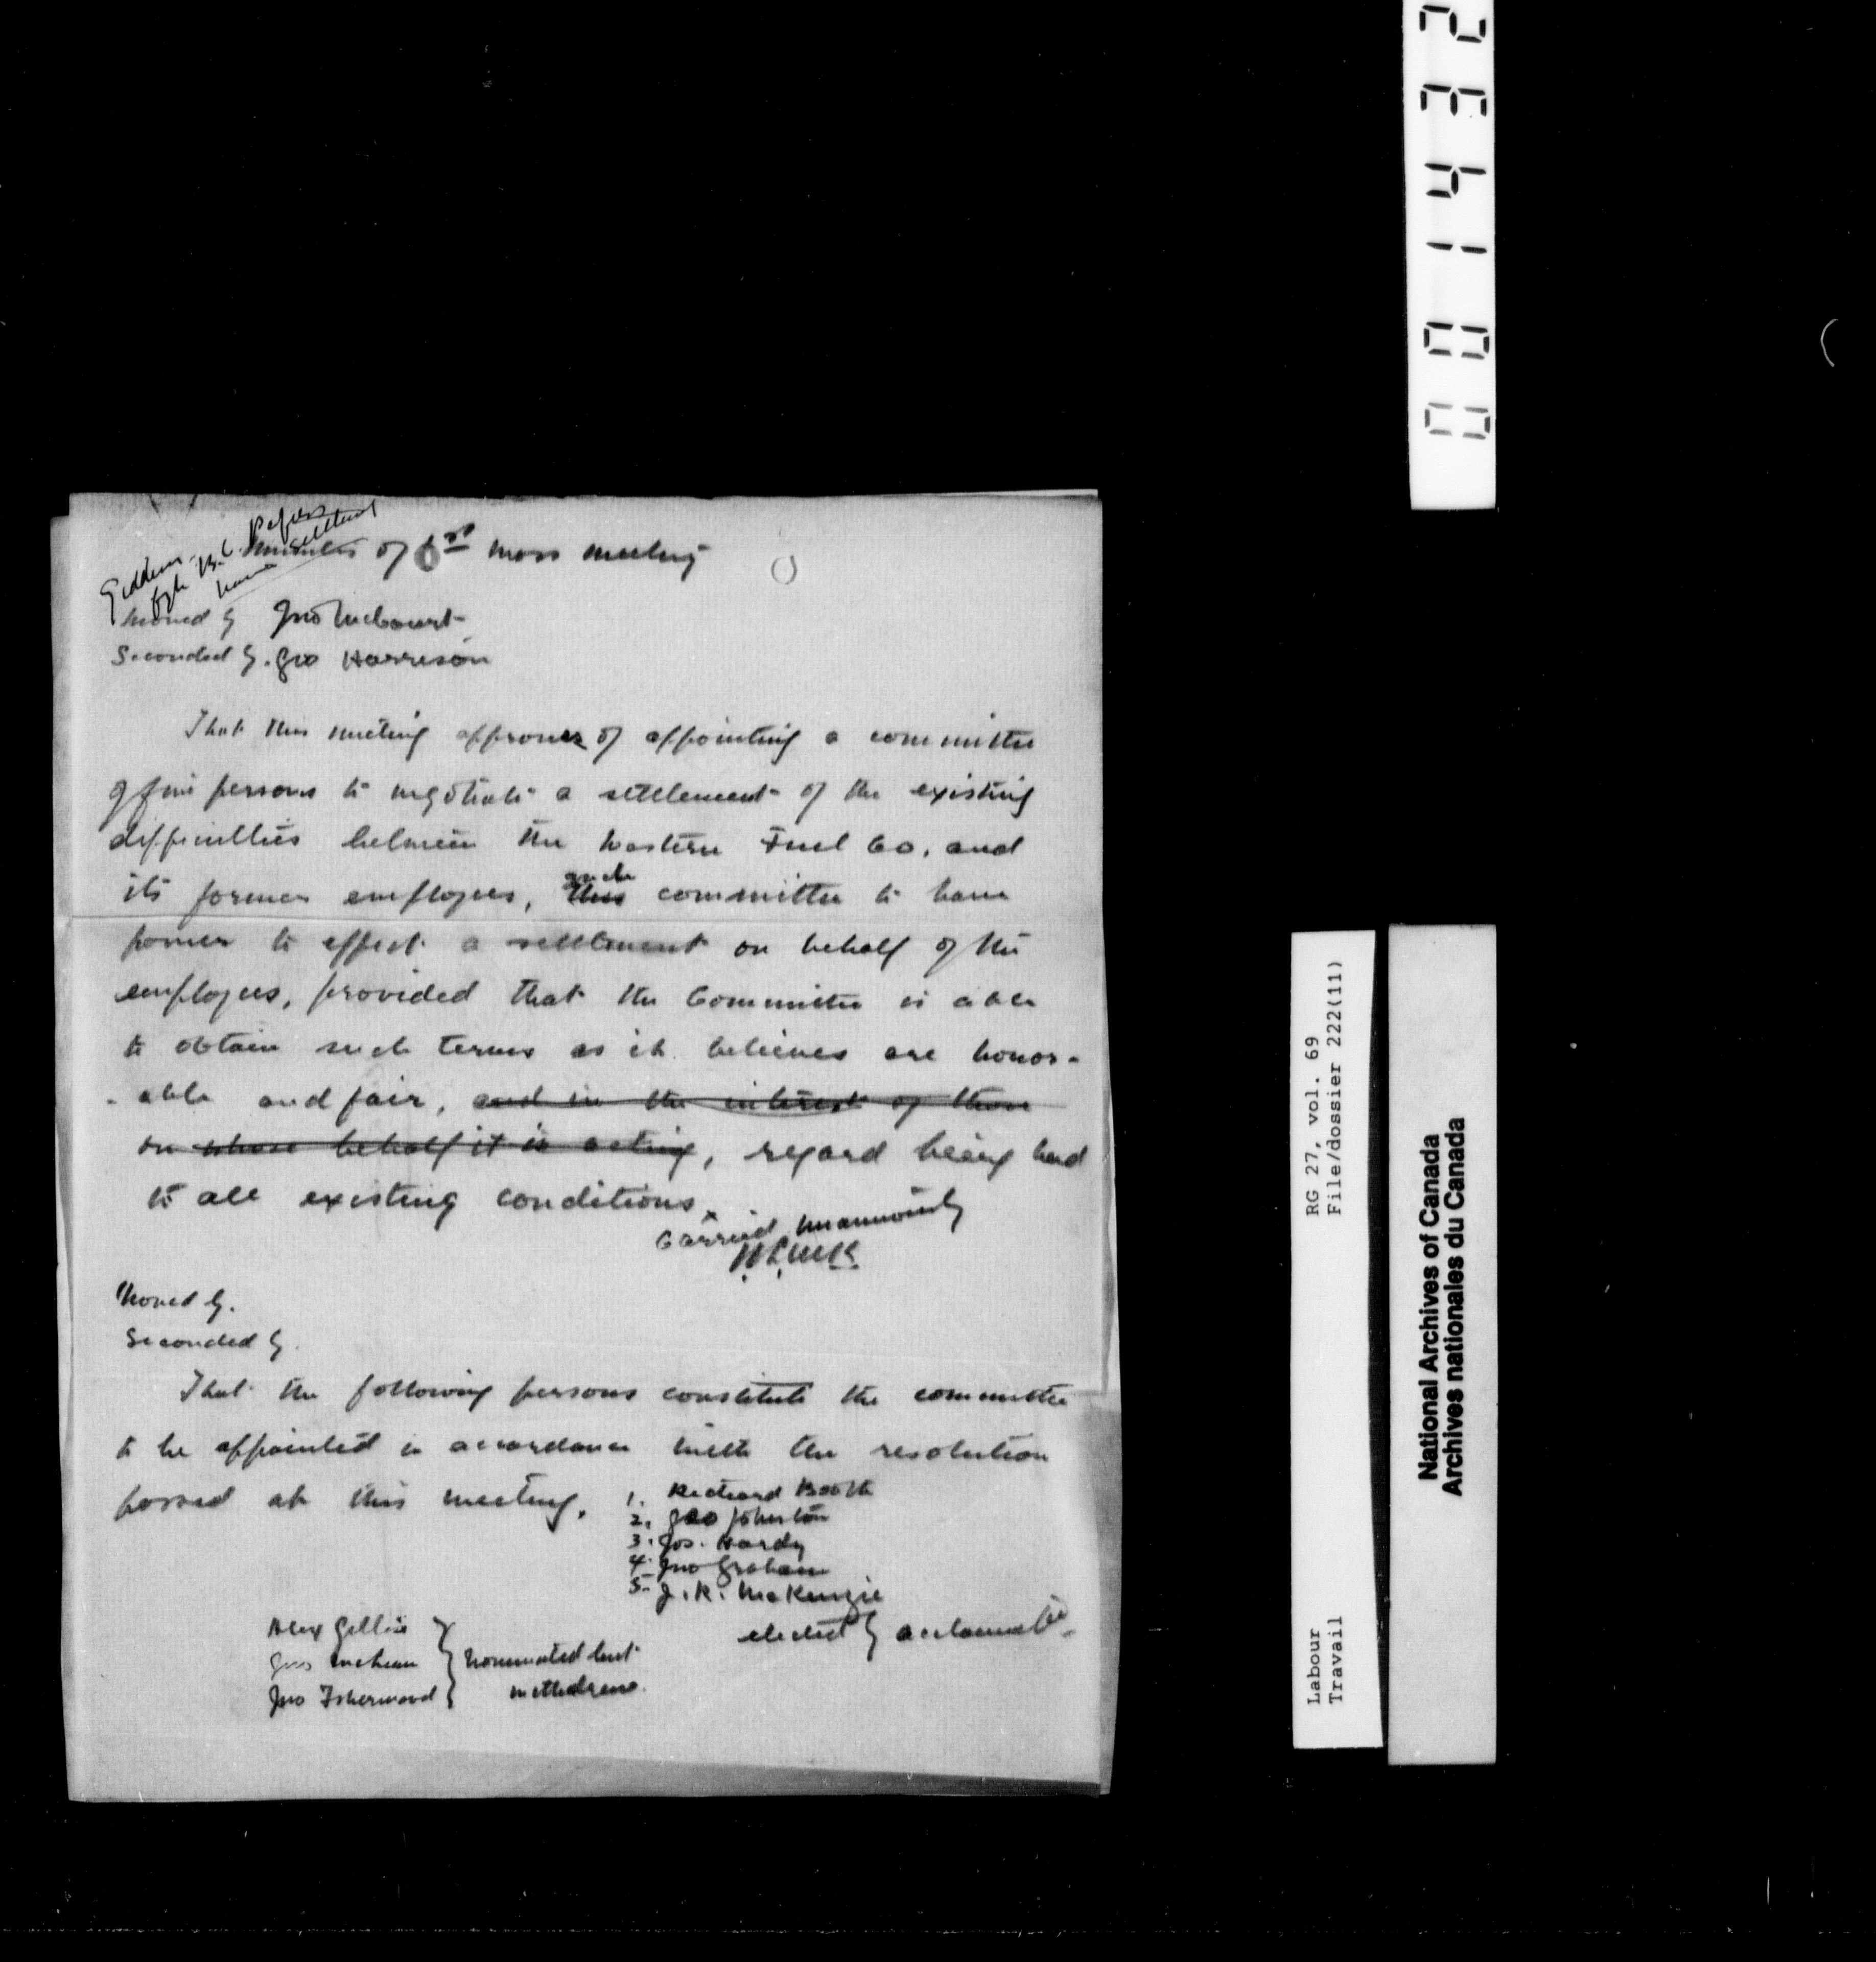 Minutes of 1st mass meeting
B.C. Papers
Moved by Jno
Seconded by. Geo Harrison
That this meeting approves of appointing a committee
of five persons to negotiate a settlement of the existing
difficulties between the Western Fuel Co, and
its former employees, such this committee to have
power to effect a settlement on behalf of the
employees, provided that the Committee is able
to obtain such terms as it believes are honor-
-able and fair, and in the interest of those
on whose behalf it is acting, regard being had
to all existing conditions.
Carried unanimously
W.L.M.K.
Moved by.
Seconded by.
That the following persons constitute the committee
to be appointed in accordance with the resolution
passed at this meeting.
1. Richard Booth
2. Geo Johnston
3. Jos. Hardy
4. Jno Graham
5- J. R. McKenzie
elected by acclamation
Alex
Jno Isherwood
nominated but
withdrew.
001432
RG 27, vol. 69
File/dossier 222(11)
Labour
Travail
National Archives of Canada
Archives nationales du Canada